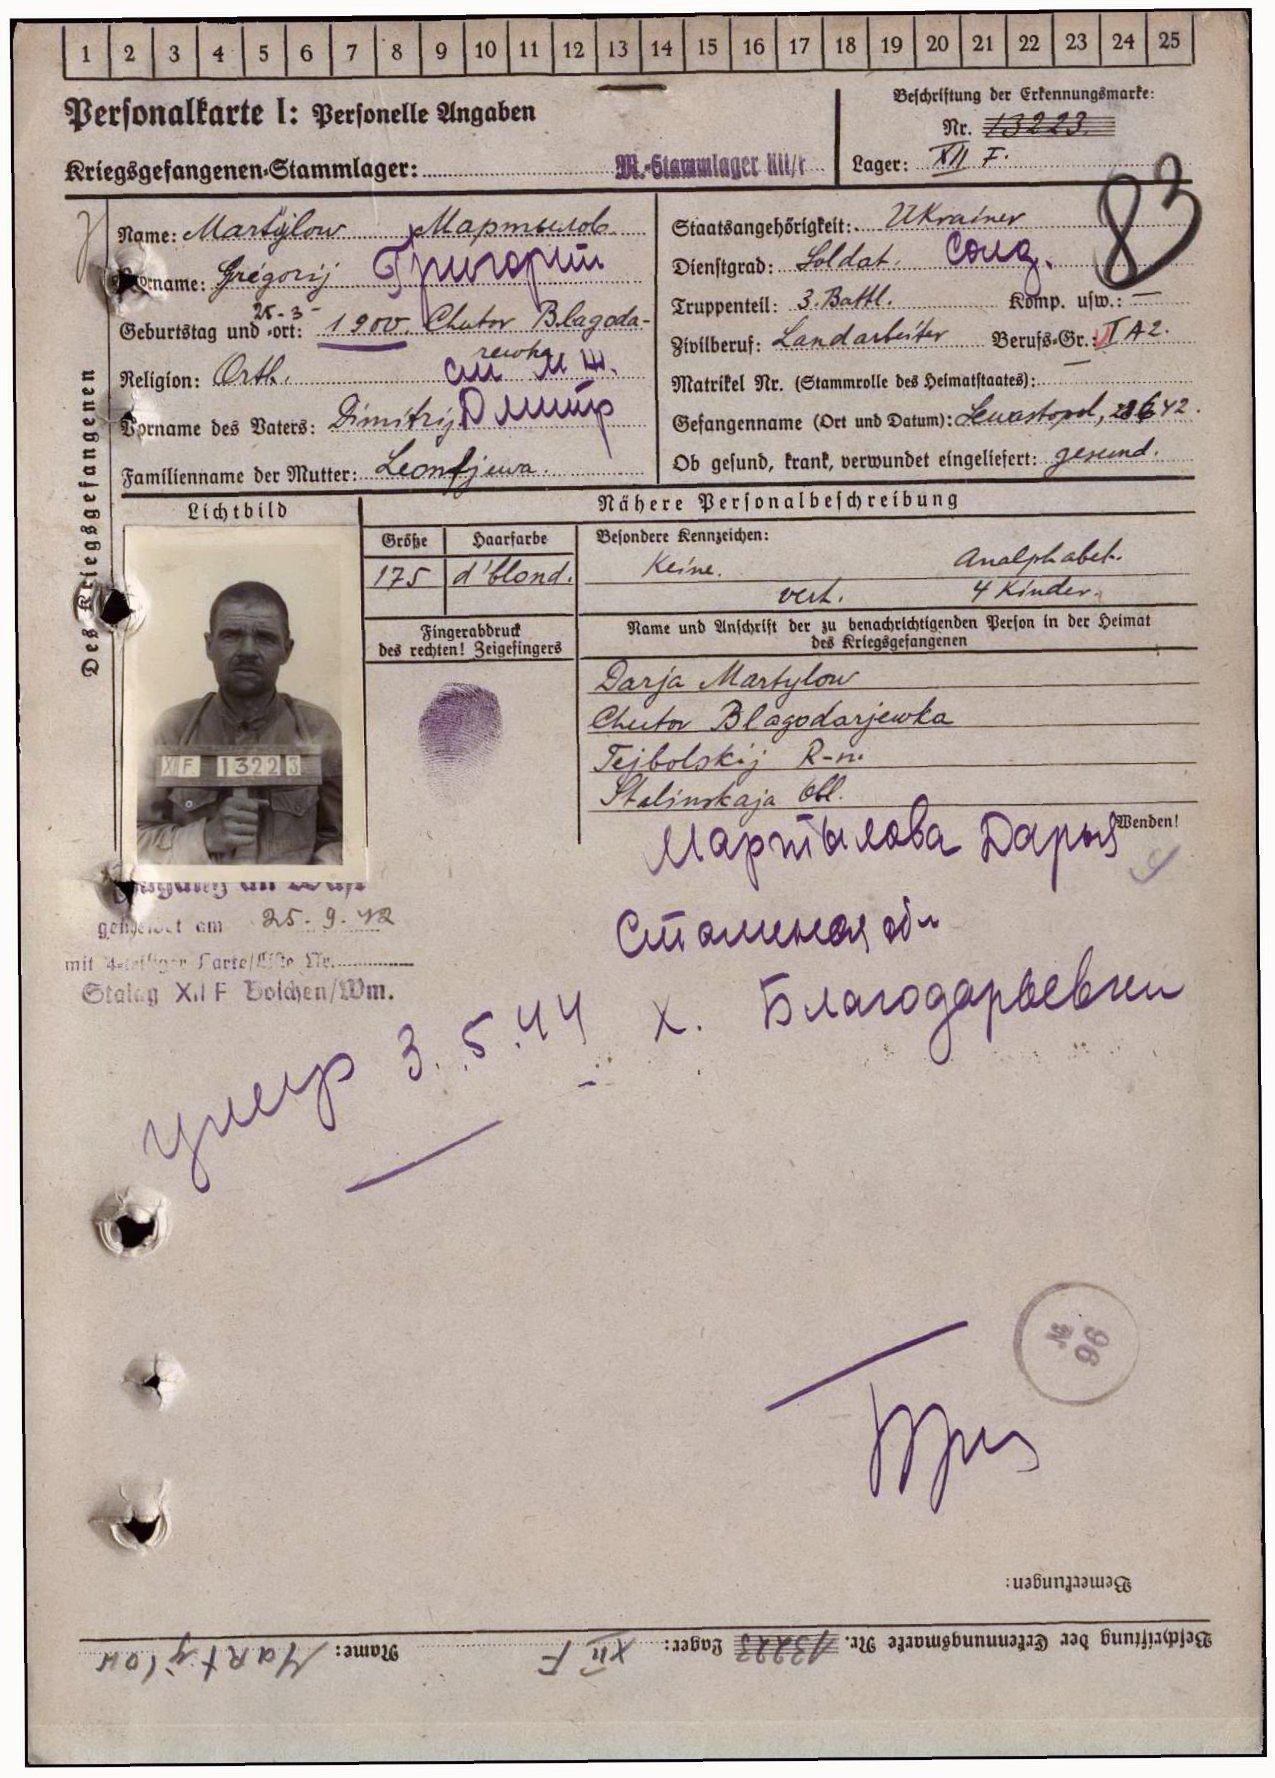 1 2 3 4 5 6 7 8 9 10 11 12 13 14 15 16 17 18 19 20 21 22 23 24 25
Personalkarte I: Personelle Angaben
Kriegsgefangenen-Stammlager: M.-Stammlager XII/F
Beschriftung der Erkennungsmarke:
Nr. 13223.
Lager: XII F.
83
Des Kriegsgefangenen
Name: Martylow Мартылов
Vorname: Gregorij Григорий
25-3-
Geburtstag und -ort: 1900. Chutor Blagoda-
rewka
Religion: Orth.
Vorname des Vaters: Dimitrij Дмитр
Familienname der Mutter: Leontjewa.
Staatsangehörigkeit: Ukrainer
Dienstgrad: Soldat. Солд.
Truppenteil: 3. Battl. Komp. usw.: —
Zivilberuf: Landarbeiter Berufs-Gr.: II A2.
Matrikel Nr. (Stammrolle des Heimatstaates): —
Gefangenname (Ort und Datum): Sewastopol, 28.6.42.
Ob gesund, krank, verwundet eingeliefert: gesund.
Lichtbild
Nähere Personalbeschreibung
Größe Haarfarbe
175 d'blond.
Besondere Kennzeichen:
Keine. Analphabet.
verh. 4 Kinder.
Fingerabdruck
des rechten! Zeigefingers
Name und Anschrift der zu benachrichtigenden Person in der Heimat
des Kriegsgefangenen
Darja Martylow
Chutor Blagodarjewka
Tejbolskij R-n.
Stalinskaja Obl.
XII F 13223
Wenden!
Мартылова Дарья
Сталинская обл
х. Благодарьевки
an WASt
gemeldet am 25.9.42
mit 4-teiliger Karte/Liste Nr.
Stalag XII F Bolchen/Wm.
умер 3.5.44
№ 96
Bemerkungen:
Beschriftung der Erkennungsmarke Nr. 13223 Lager: XII F Name: Martylow